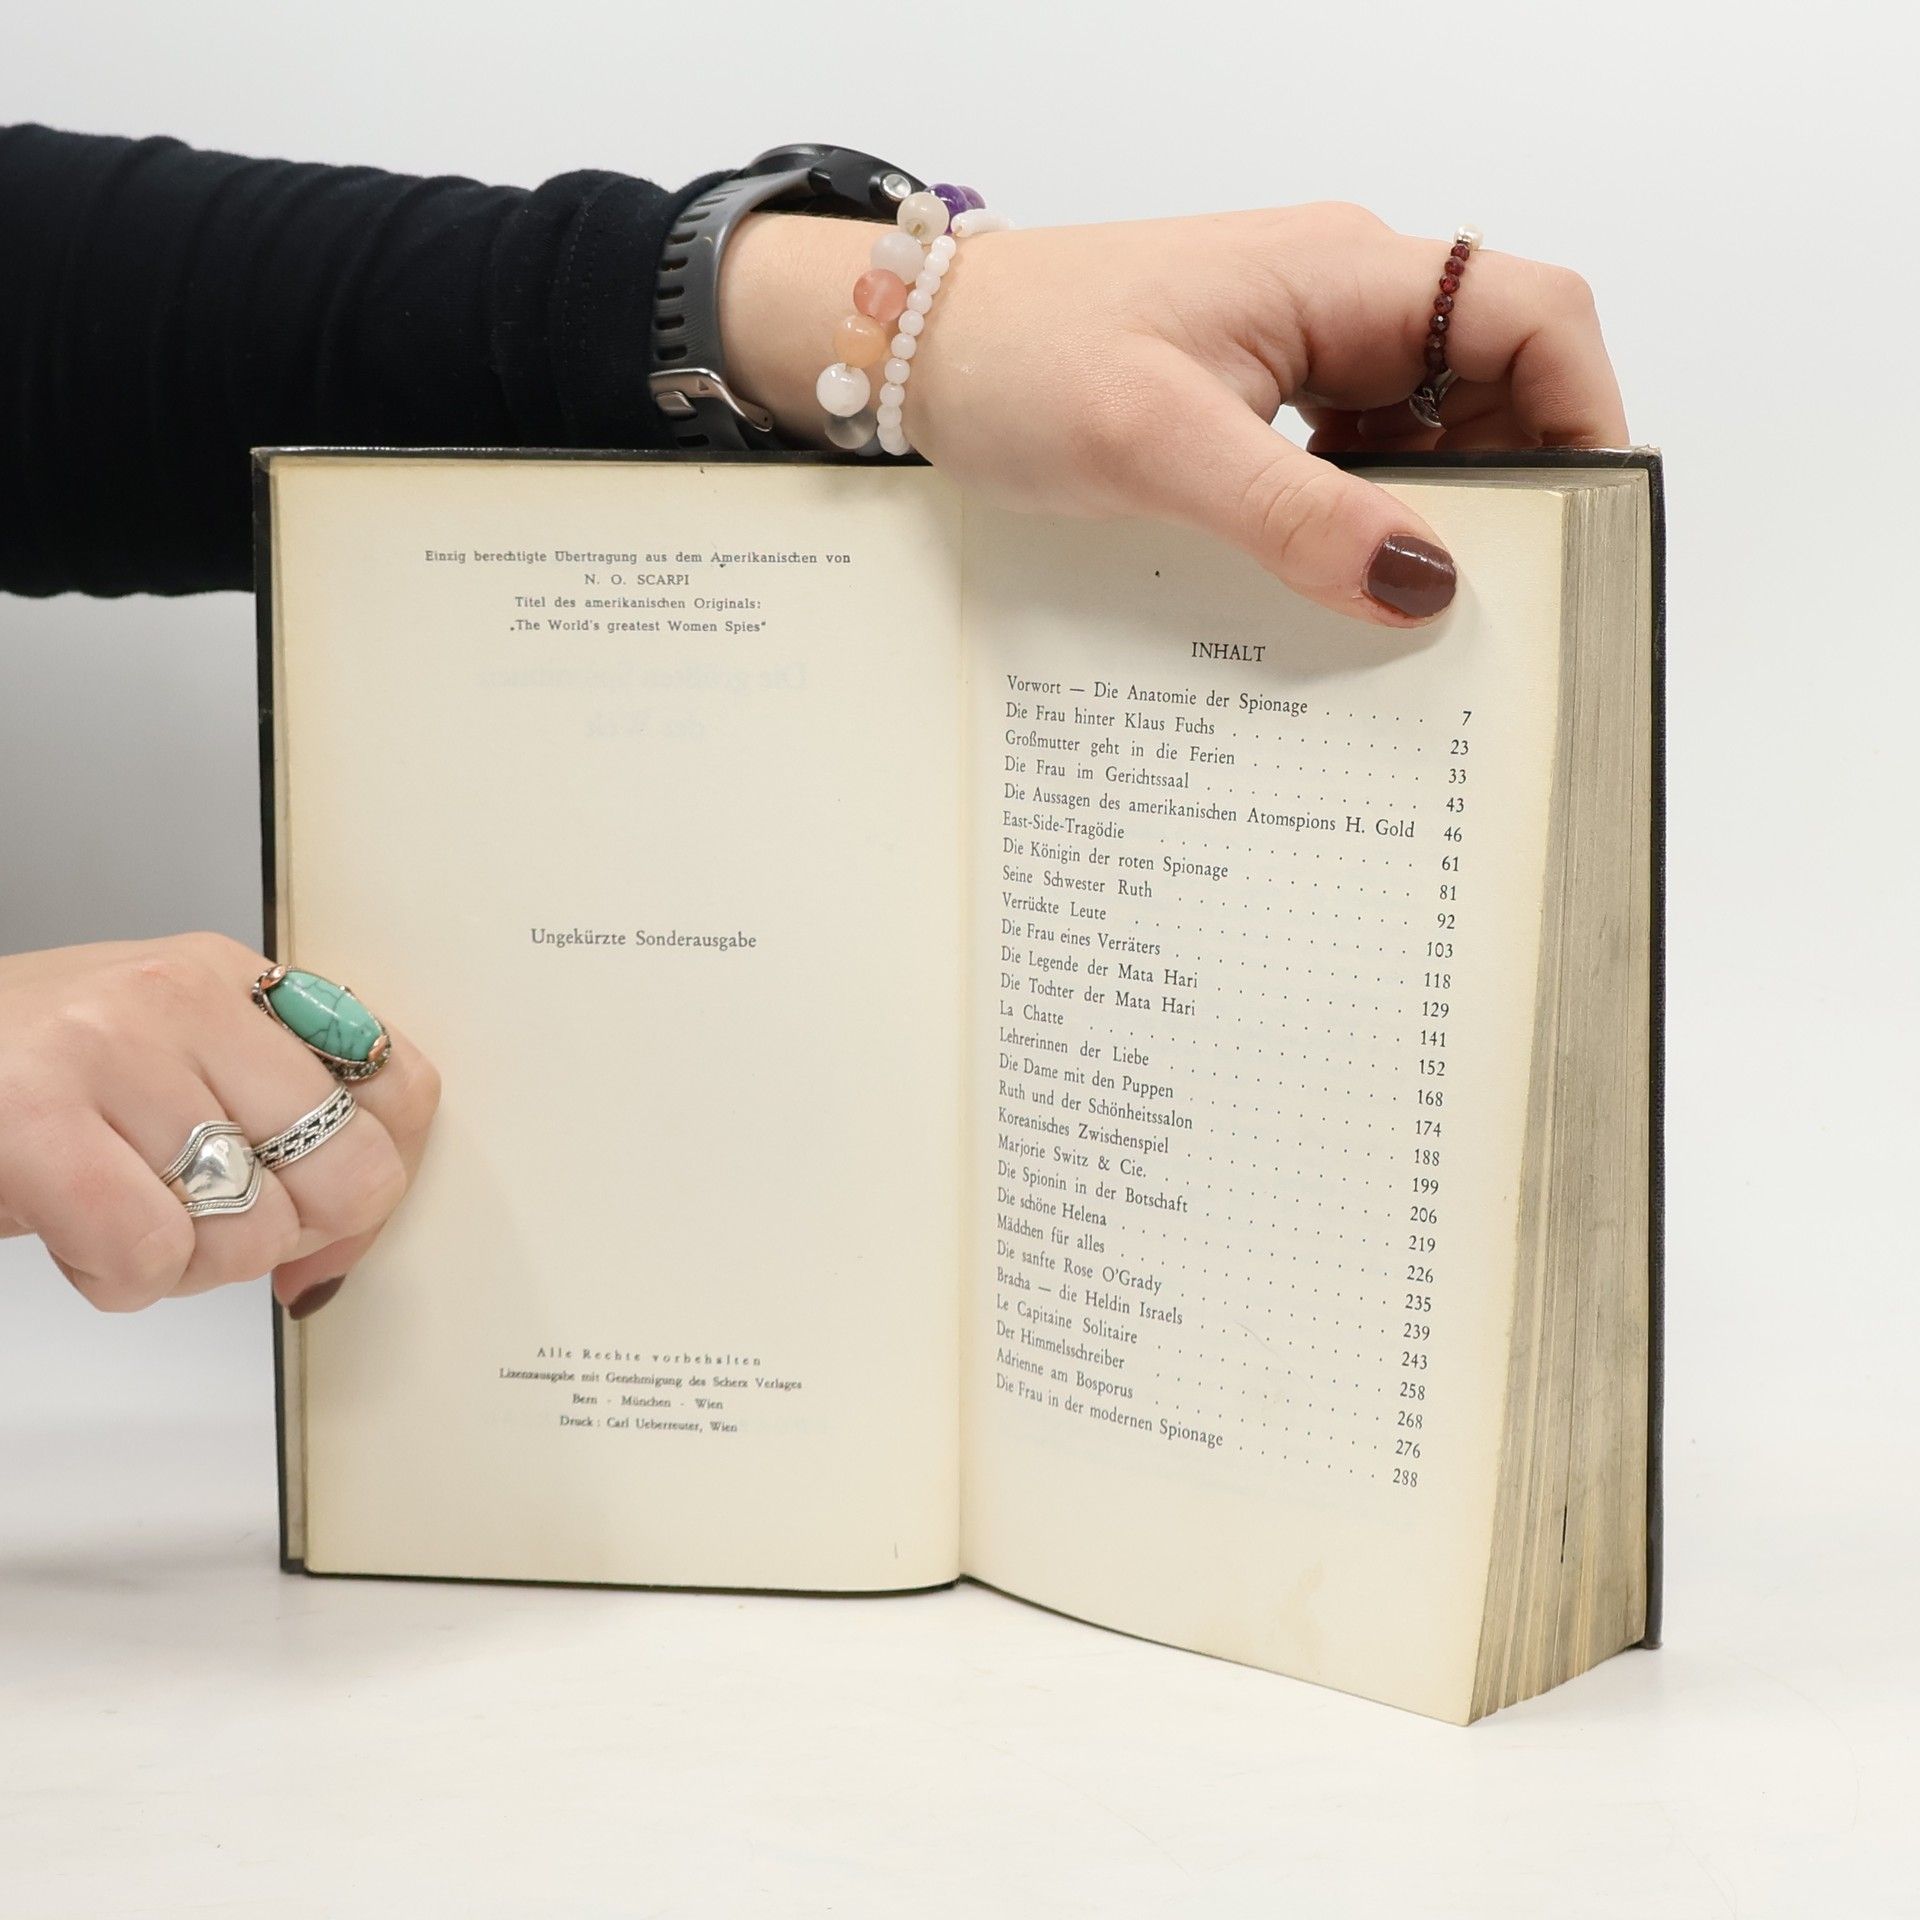 Einzig berechtigte Übertragung aus dem Amerikanischen von
N. O. SCARPI
Titel des amerikanischen Originals:
„The World's greatest Women Spies“
Ungekürzte Sonderausgabe
Alle Rechte vorbehalten
Lizenzausgabe mit Genehmigung des Scherz Verlages
Bern - München - Wien
Druck: Carl Ueberreuter, Wien
INHALT
Vorwort — Die Anatomie der Spionage . . . . . 7
Die Frau hinter Klaus Fuchs . . . . . . . . 23
Großmutter geht in die Ferien . . . . . . . 33
Die Frau im Gerichtssaal . . . . . . . . . 43
Die Aussagen des amerikanischen Atomspions H. Gold 46
East-Side-Tragödie . . . . . . . . . . . 61
Die Königin der roten Spionage . . . . . . . 81
Seine Schwester Ruth . . . . . . . . . . 92
Verrückte Leute . . . . . . . . . . . . 103
Die Frau eines Verräters . . . . . . . . . 118
Die Legende der Mata Hari . . . . . . . . 129
Die Tochter der Mata Hari . . . . . . . . 141
La Chatte . . . . . . . . . . . . . 152
Lehrerinnen der Liebe . . . . . . . . . . 168
Die Dame mit den Puppen . . . . . . . . 174
Ruth und der Schönheitssalon . . . . . . . 188
Koreanisches Zwischenspiel . . . . . . . . 199
Marjorie Switz & Cie. . . . . . . . . . 206
Die Spionin in der Botschaft . . . . . . . 219
Die schöne Helena . . . . . . . . . . . 226
Mädchen für alles . . . . . . . . . . . 235
Die sanfte Rose O'Grady . . . . . . . . 239
Bracha — die Heldin Israels . . . . . . . 243
Le Capitaine Solitaire . . . . . . . . . 258
Der Himmelsschreiber . . . . . . . . . 268
Adrienne am Bosporus . . . . . . . . . 276
Die Frau in der modernen Spionage . . . . . . 288